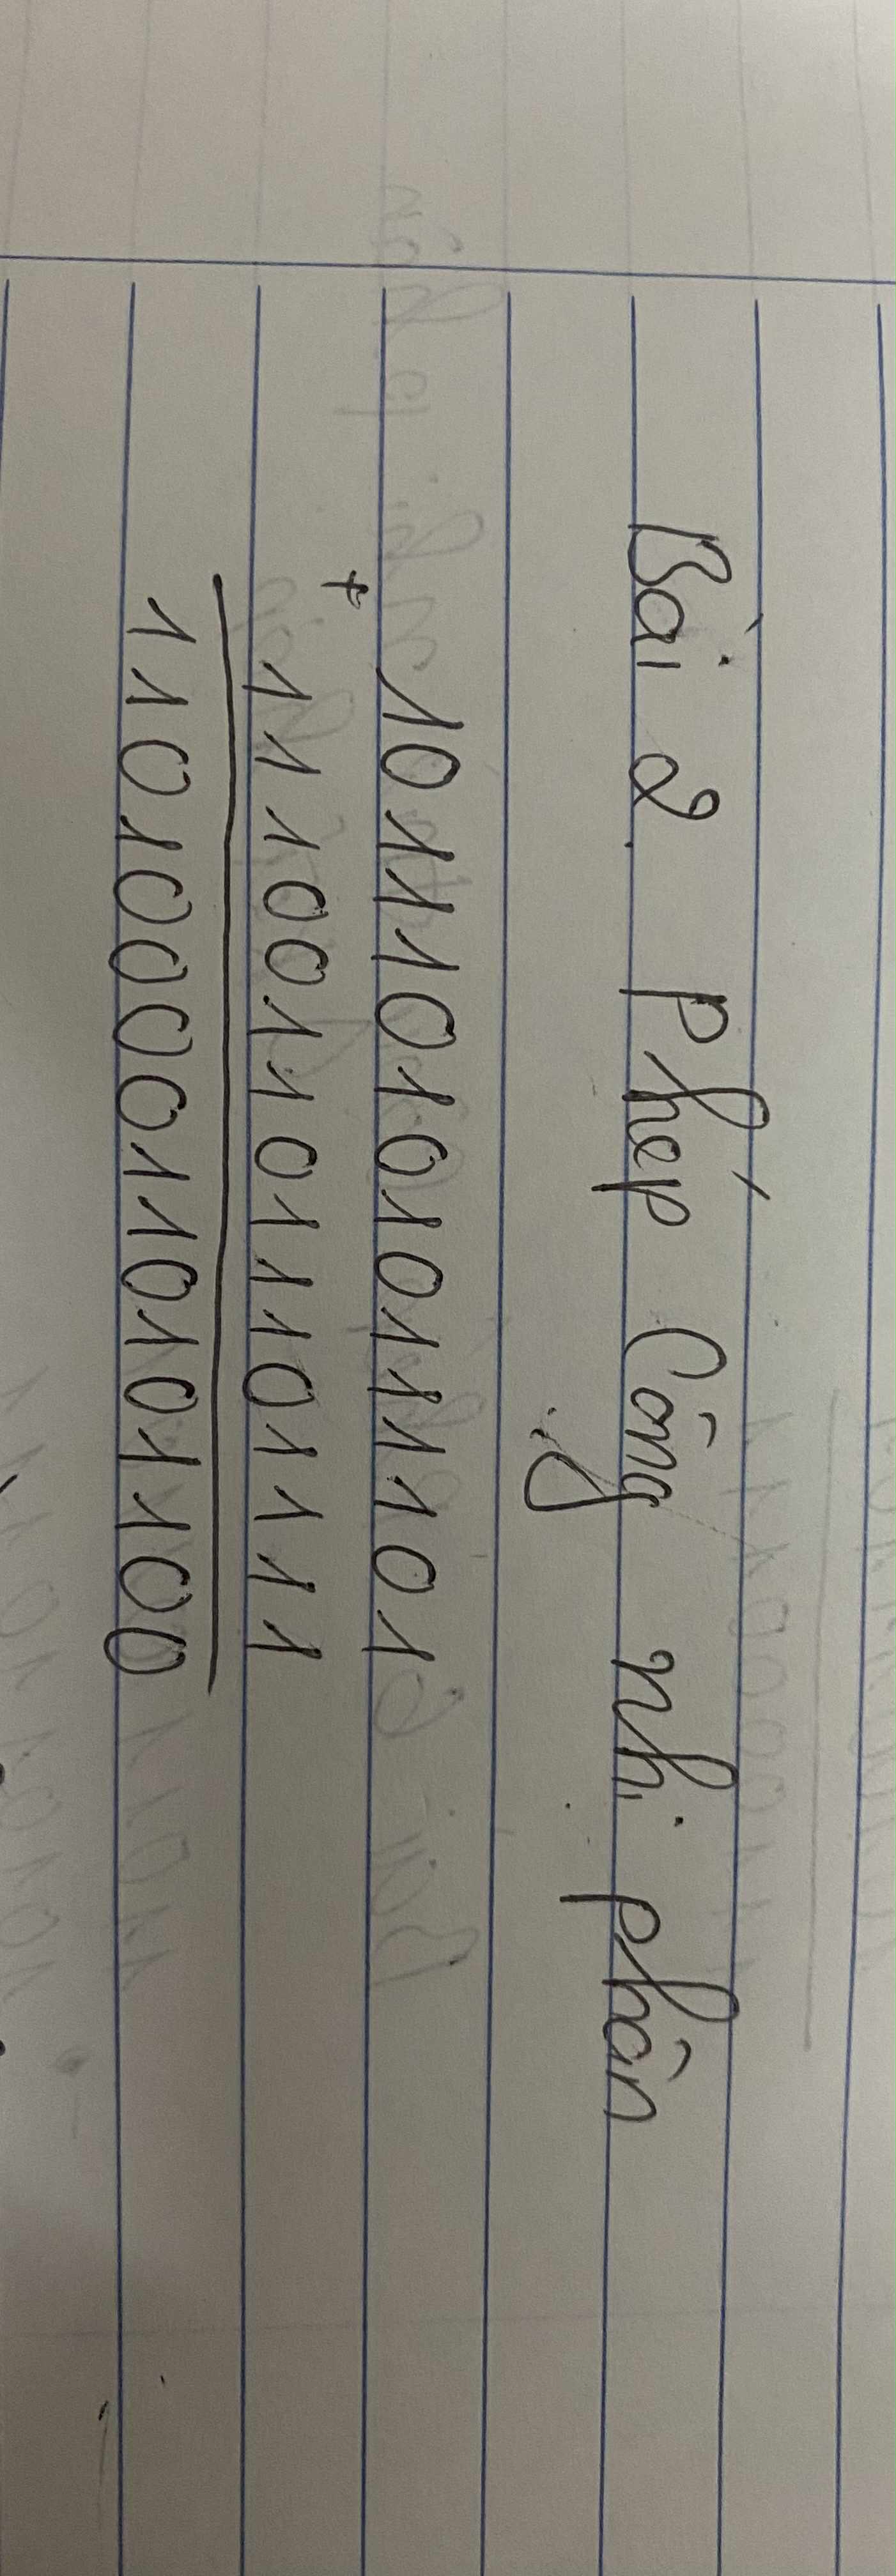 Bài 2 Phép Cộng nhị phân
1011101010111101
+
1110011011101111
11010000110101100